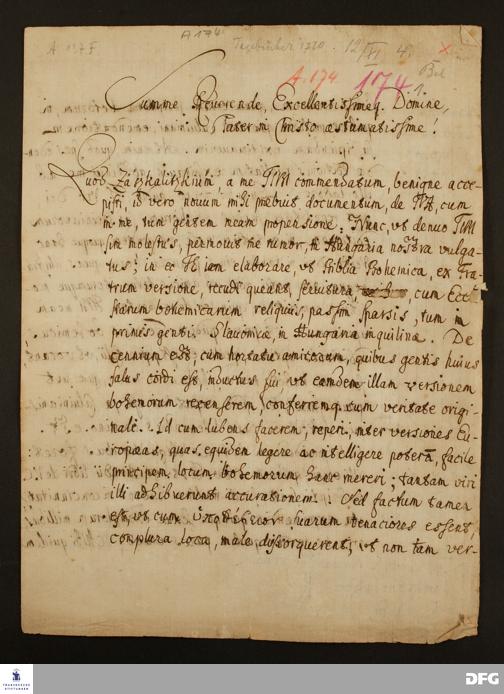 A 127 F
A 174
Tagebücher 1720. 12/VI 4.
A. 174
1174
Bel
1.
Summe Reverende, Excellentissimeq. Domine,
Pater in Christo æstumatissime!
Quod Zaskalitzkium, a me Tibi commendatum, benigne acce-
pisti, id vero novum mihi præbuit documentum, de Tua, cum
in me, tum gentem meam propensione. Nunc, ut denuo Tibi
sim molestus, permovit me rumor, in Hungaria nostra vulga-
tus; in eo Te iam elaborare, ut Biblia Bohemica, ex Fra-
trum versione, recudi queant, servitura, cum Eccl
siarum bohemicarum reliquiis, passim sparsis, tum in
primis genti Slavonicæ, in Hungaria inquilinæ. De
cennium est, cum hortatu amicorum, quibus gentis huius
salus cordi est, inductus fui ut eamdem illam versionem
bohemorum recenserem, conferremq. cum veritate origi-
nali. Id cum lubens facerem, reperi, inter versiones Eu-
ropæas, quas equidem legere ac intelligere poteram, facile
principem locum bohemorum hanc mereri; tantam viri
illi adhibuerunt accurationem. Sed factum tamen
est, ut cum ὑποθέσεων suarum tenaciores essent,
complura loca, male detorquerent; ut non tam ver-
FRANCKESCHE
STIFTUNGEN
DFG